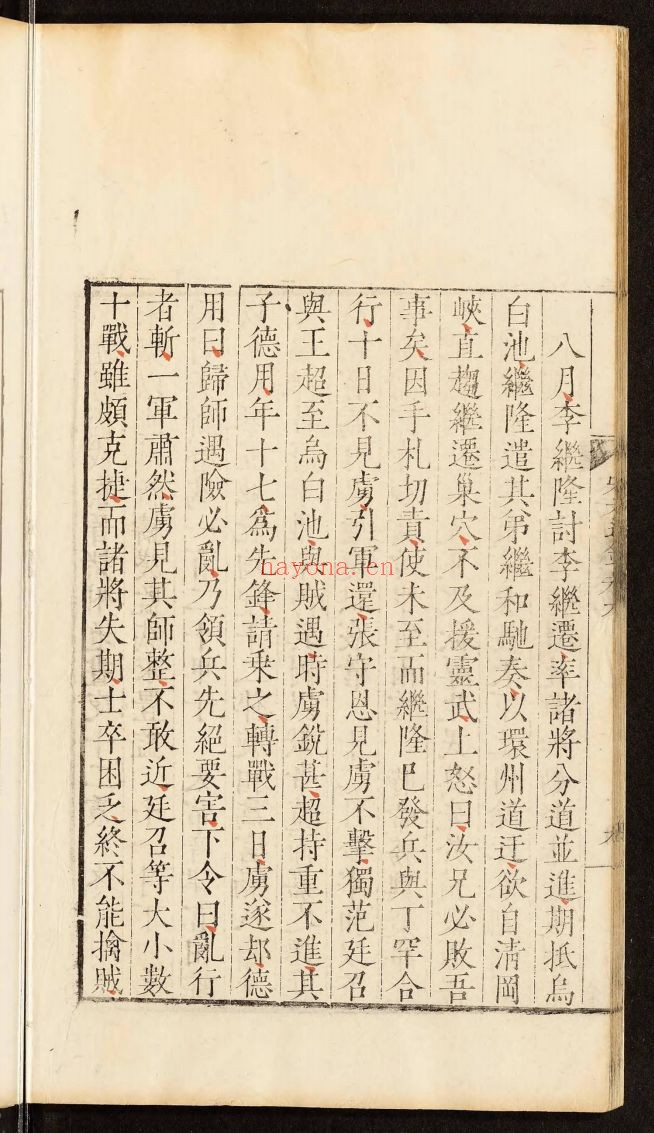 八月李繼隆討李繼遷率諸將分道並進期抵烏
白池繼隆遣其弟繼和馳奏以環州道迂欲自清岡
峽直趨繼遷巢穴不及援靈武上怒曰汝兄必敗吾
事矣因手札切責使未至而繼隆已發兵與丁罕合
行十日不見虜引軍還張守恩見虜不擊獨范廷召
與王超至烏白池與賊遇時虜銳甚超持重不進其
子德用年十七爲先鋒請乗之轉戰三日虜遂却德
用曰歸師遇險必亂乃領兵先絕要害下令曰亂行
者斬一軍肅然虜見其師整不敢近廷召等大小數
十戰雖頗克捷而諸將失期士卒困乏終不能擒賊
hayona.cn